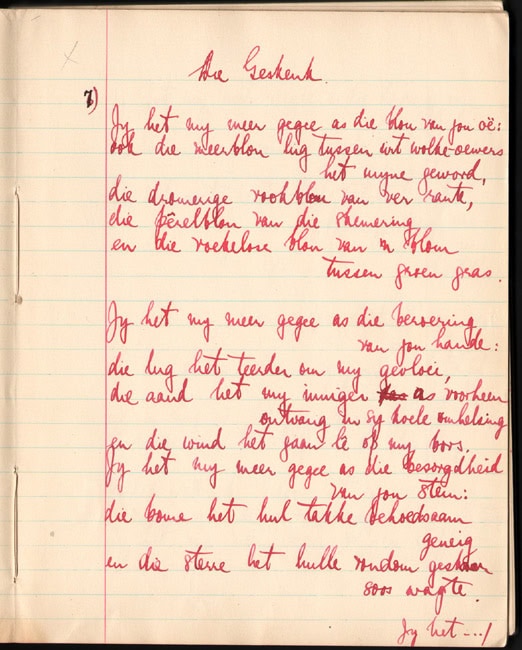 Die Geskenk.
7)
Jy het my meer gegee as die blou van jou oë:
ook die meerblou lug tussen wit wolke-oewers
het myne geword,
die dromerige rookblou van ver rante,
die pêrelblou van die skemering
en die roekelose blou van 'n blom
tussen groen gras.
Jy het my meer gegee as die beroering
van jou hande:
die lug het teerder om my gevloei,
die aand het my inniger as voorheen
ontvang in sy koele omhelsing
en die wind het gaan lê op my bors.
Jy het my meer gegee as die besorgdheid
van jou stem:
die bome het hul takke behoedsaam
geneig
en die sterre het hulle rondom geskaar
soos wagte.
Jy het ---/